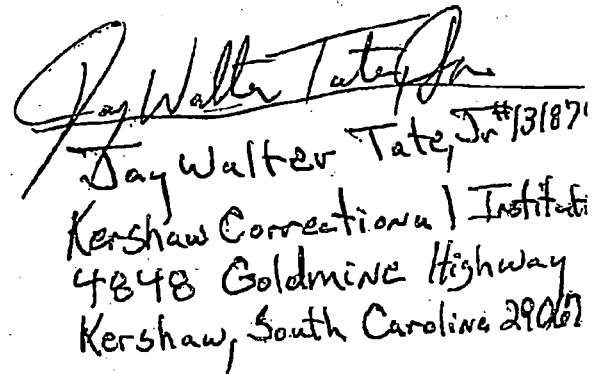 Jay Walter Tate, Jr.
Jay Walter Tate, Jr #13187
Kershaw Correctional Instituti
4848 Goldmine Highway
Kershaw, South Carolina 29067